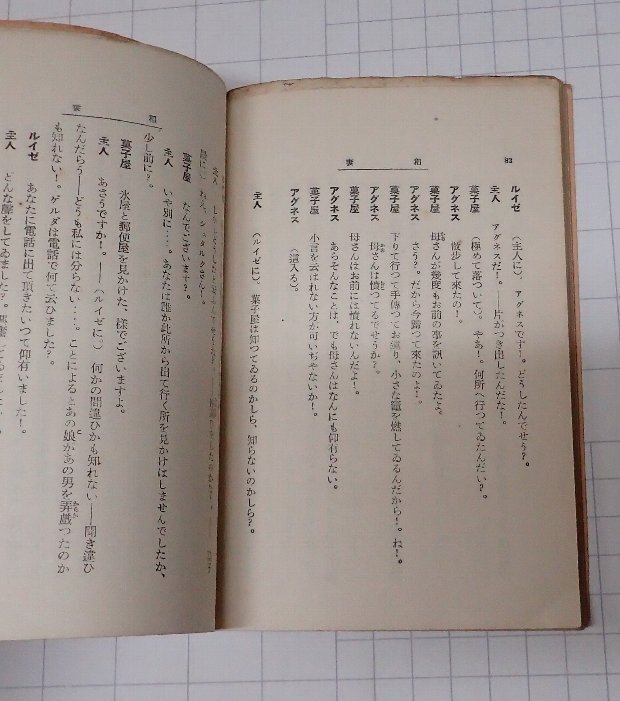 82
稲妻
ルイゼ (主人に)。アグネスです!。どうしたんでせう?。
主人 アグネスだ!。――片がつき出したんだな!。
菓子屋 (極めて落ついて)。やあ!。何所へ行つてゐたんだい?。
アグネス 散歩して來たの!。
菓子屋 母さんが幾度もお前の事を訊いてゐたよ。
アグネス さう?。だから今歸つて來たのよ!。
菓子屋 下りて行つて手傳つてお遣り、小さな竈を燃してゐるんだから!。ね!。
アグネス 母さんは憤つてるでせうか?。
菓子屋 母さんはお前には憤れないんだよ!。
アグネス あらそんなことは、でも母さんはなんにも仰有らない。
菓子屋 小言を云はれない方が可いぢやないか!。
アグネス (這入る)。
主人 (ルイゼに)。菓子屋は知つてゐるのかしら、知らないのかしら?。
稲妻
ねえ、シュタルクさん!。
菓子屋 なんでございます?。
主人 いや別に‥‥。あなたは誰か此所から出て行く所を見かけはしませんでしたか、
少し前に?。
菓子屋 氷屋と郵便屋を見かけた、様でございますよ。
主人 あさうですか!。――(ルイゼに)何かの間違ひかも知れない――聞き違ひ
たんだらう――どうも私には分らない‥‥。ことによるとあの娘があの男を弄戯つたのか
も知れない!。ゲルダは電話で何て云ひました?。
ルイゼ あなたに電話に出て頂きたいつて仰有いました!。
主人 どんな聲をしてゐました?。